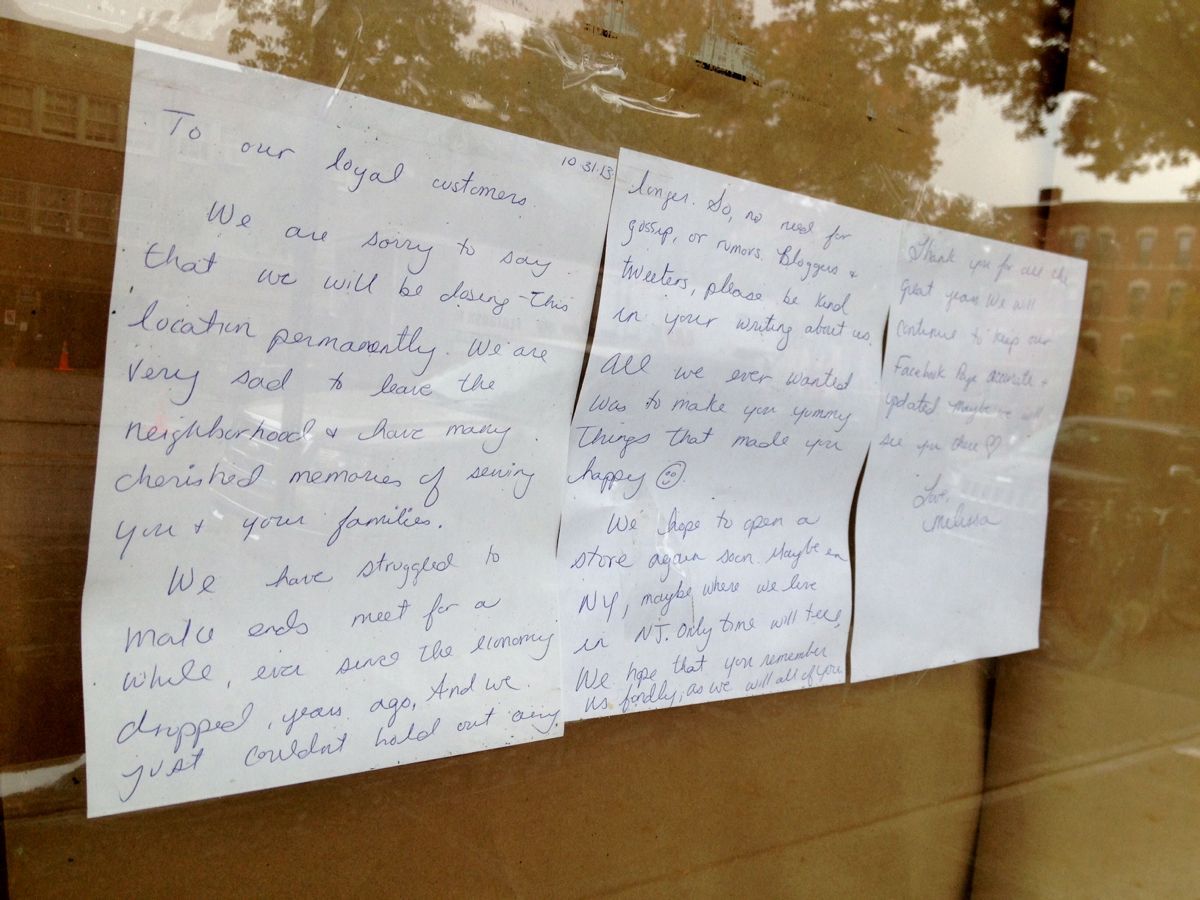 10.31.13
To our loyal customers.
We are sorry to say
that we will be closing this
location permanently. We are
very sad to leave the
neighborhood & have many
cherished memories of serving
you & your families.
We have struggled to
make ends meet for a
while, ever since the economy
dropped, years ago. And we
just couldn't hold out any
longer. So, no need for
gossip, or rumors. Bloggers &
tweeters, please be kind
in your writing about us.
All we ever wanted
was to make you yummy
things that made you
happy ☺.
We hope to open a
store again soon. Maybe in
NY, maybe where we live
in NJ. Only time will tell.
We hope that you remember
us fondly, as we will all of you.
Thank you for all the
great years. We will
continue to keep our
Facebook Page accurate &
updated maybe we will
see you there ♡
Love,
Melissa